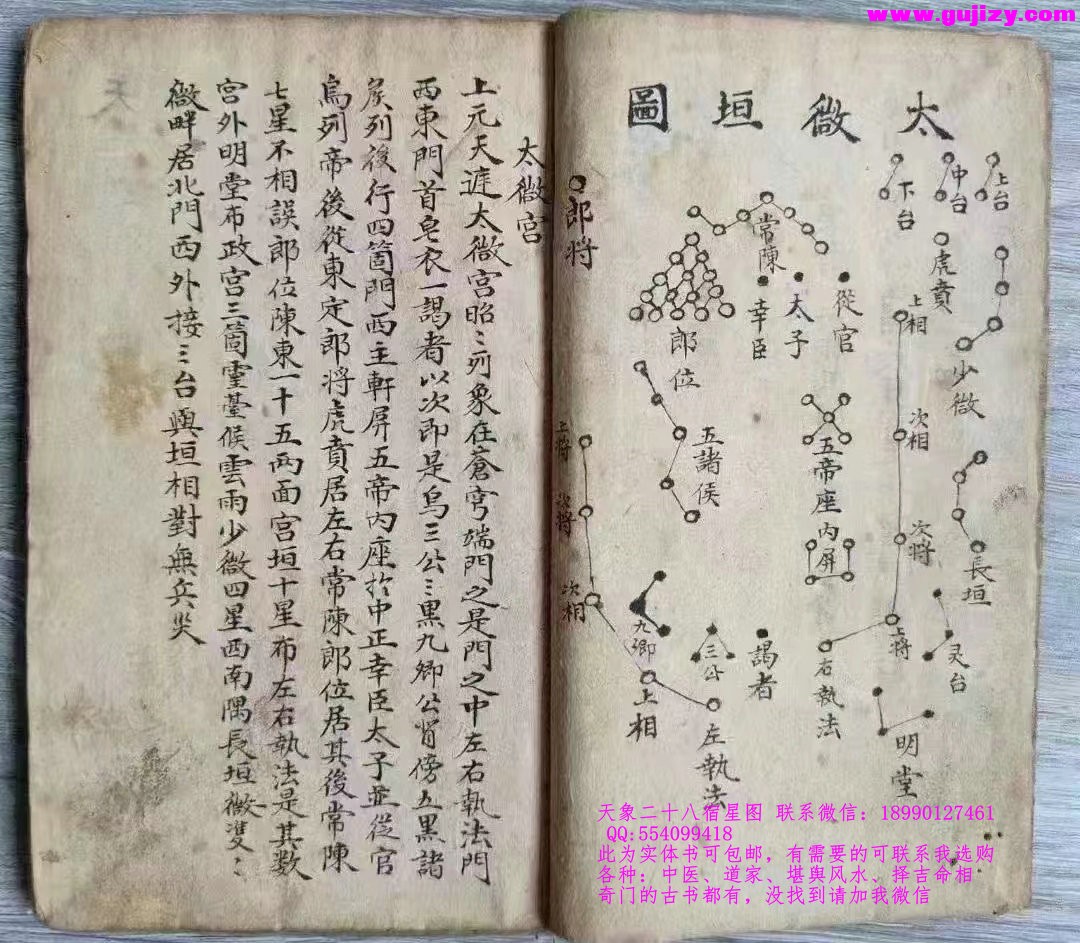 www.gujizy.com
太微垣圖
上台
中台
下台
虎賁
少微
常陳
從官
太子
幸臣
郎位
郎將
上相
次相
次將
上將
五帝座
內屏
五諸侯
長垣
灵台
明堂
右執法
謁者
三公
九卿
左執法
上將
次將
次相
上相
太微宮
上元天庭太微宮昭〻列象在蒼穹端門之是門之中左右執法門
西東門首皂衣一謁者以次即是烏三公三黑九卿公背傍五黑諸
侯列後行四箇門西主軒屏五帝內座於中正幸臣太子並從官
烏列帝後從東定郎將虎賁居左右常陳郎位居其後常陳
七星不相誤郎位陳東一十五兩面宮垣十星布左右執法是其數
宮外明堂布政宮三箇靈臺候雲雨少微四星西南隅長垣微雙〻
微畔居北門西外接三台與垣相對無兵災
天象二十八宿星图 联系微信：18990127461
QQ:554099418
此为实体书可包邮，有需要的可联系我选购
各种：中医、道家、堪舆风水、择吉命相
奇门的古书都有，没找到请加我微信